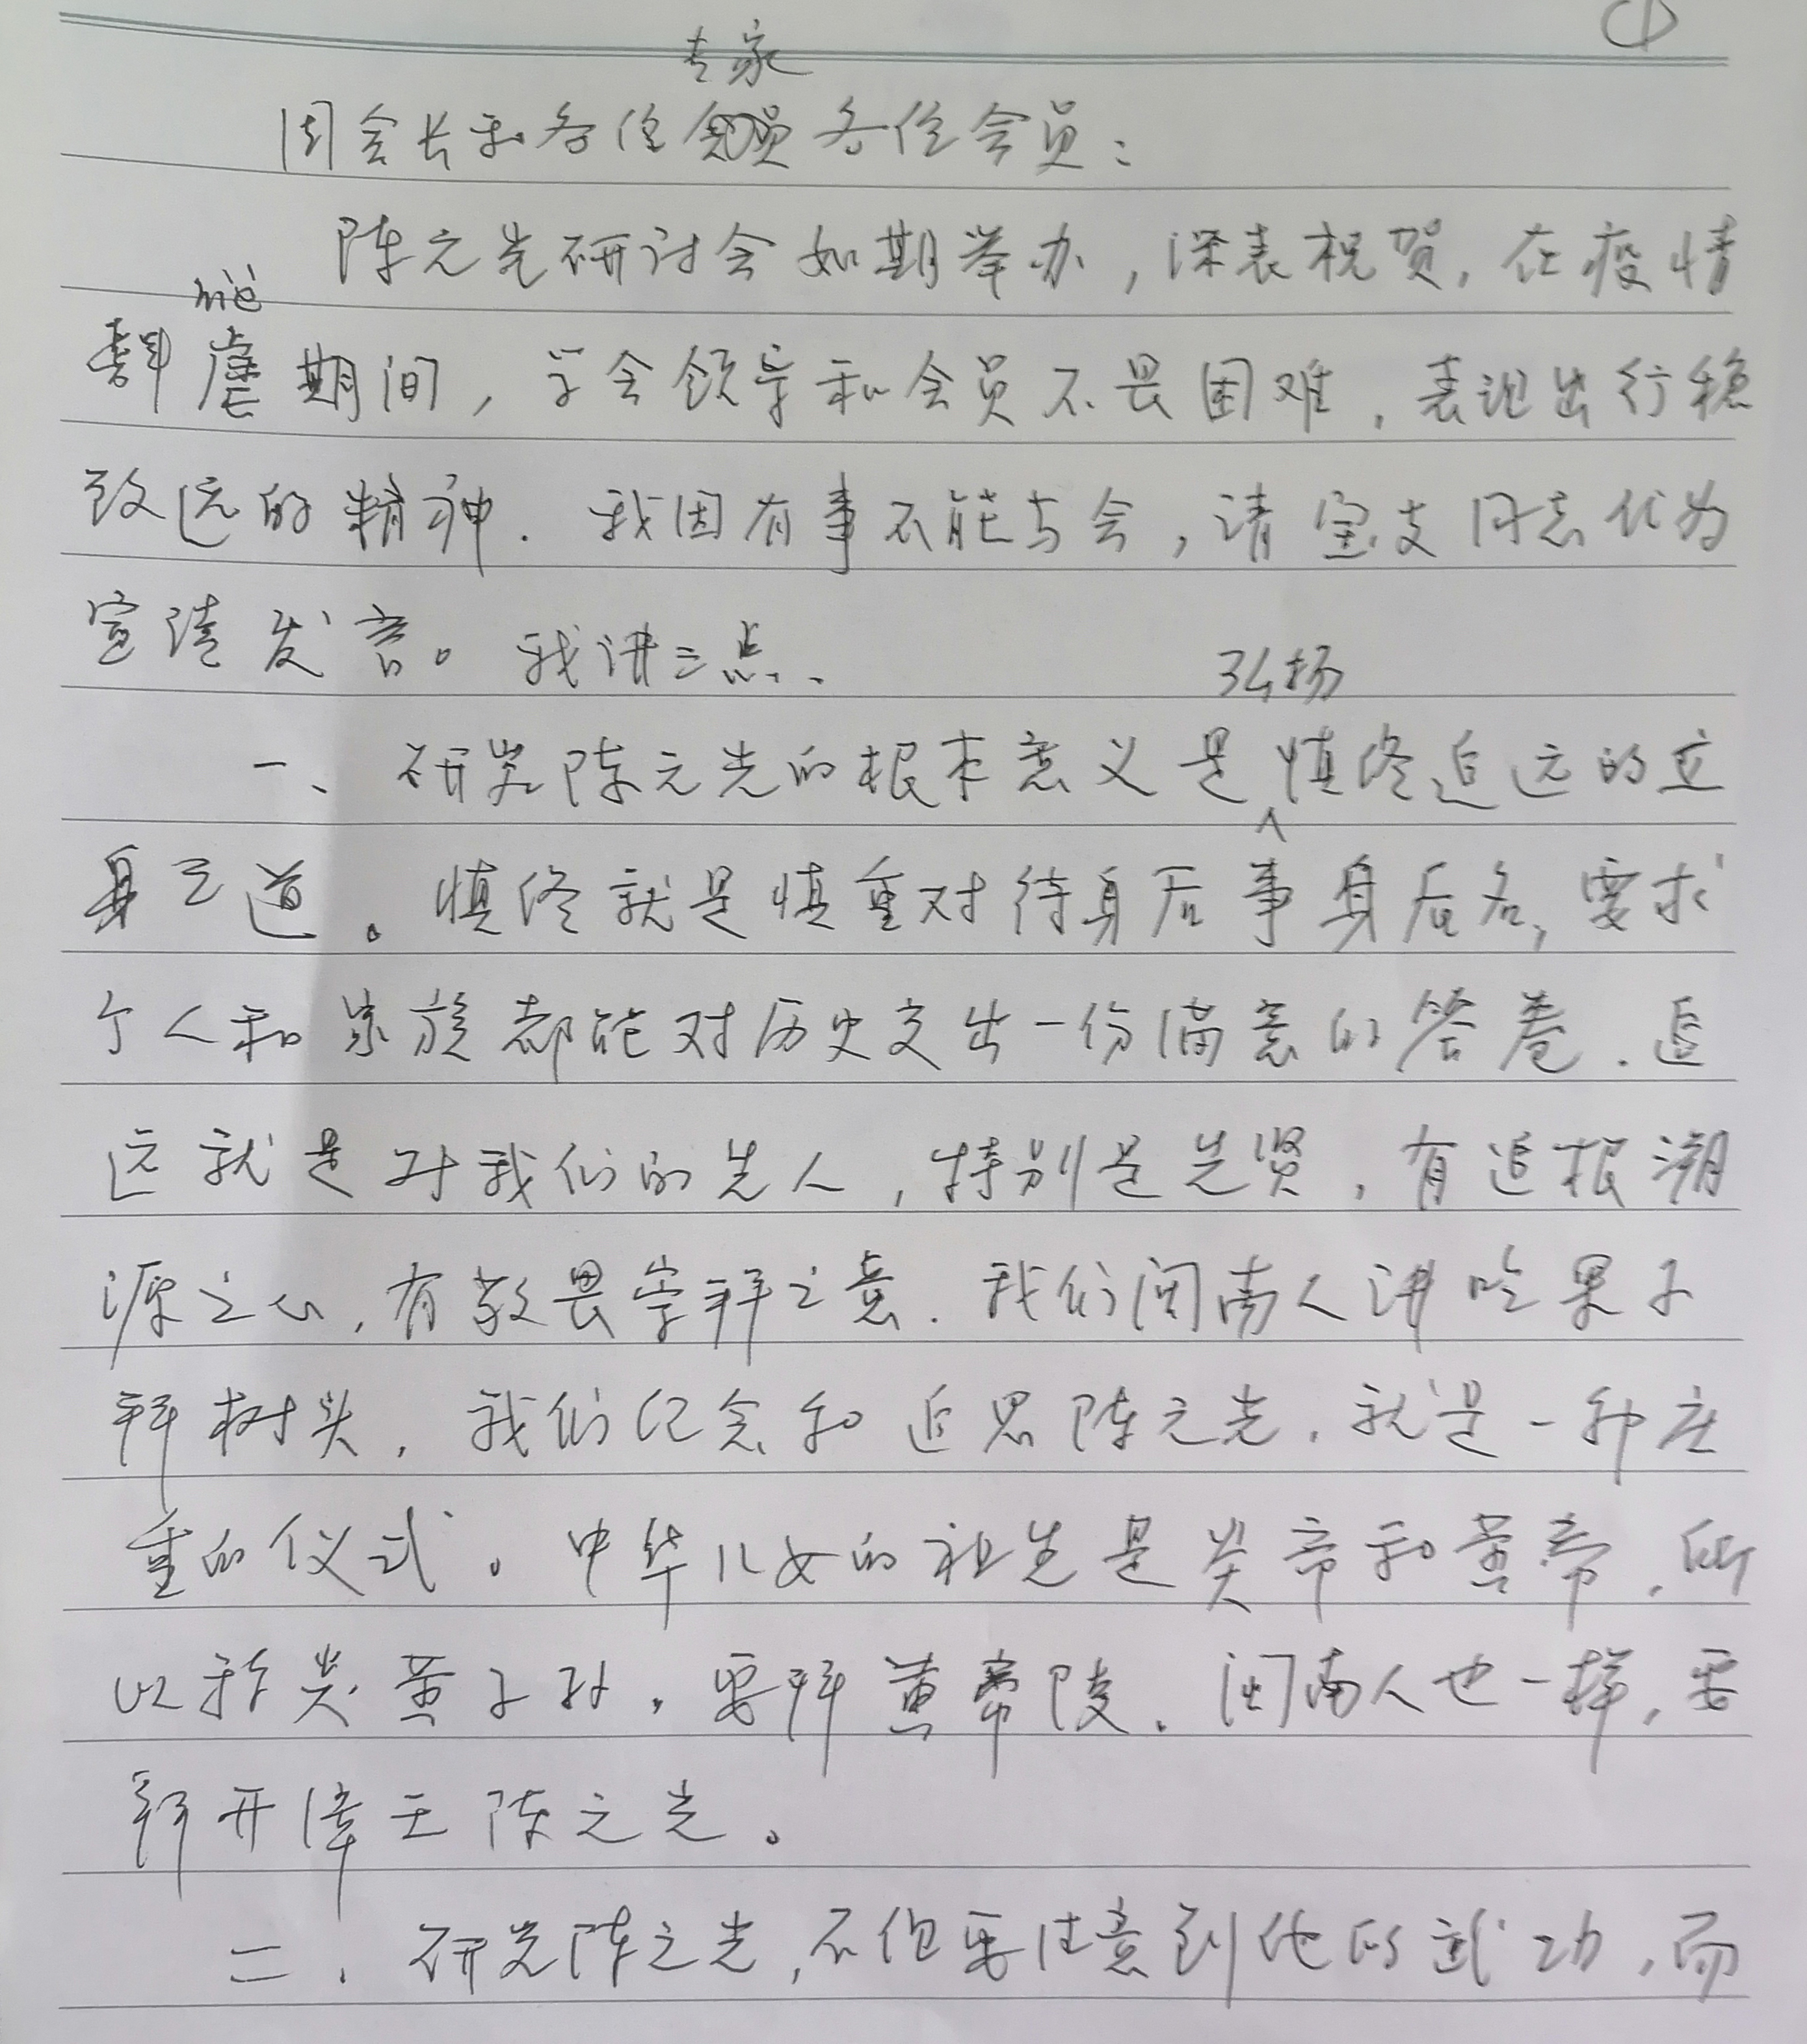 ①
专家
周会长和各位各位会员：
陈元光研讨会如期举办，深表祝贺，在疫情
肆虐期间，学会领导和会员不畏困难，表现出行稳
致远的精神．我因有事不能与会，请宝支同志代为
宣读发言。我讲三点．
弘扬
一、研究陈元光的根本意义是∧慎终追远的立
身之道。慎终就是慎重对待身后事身后名，要求
个人和家族都能对历史交出一份满意的答卷．追
远就是对我们的先人，特别是先贤，有追根溯
源之心，有敬畏崇拜之意．我们闽南人讲吃果子
拜树头，我们纪念和追思陈元光，就是一种庄
重的仪式。中华儿女的祖先是炎帝和黄帝，所
以称炎黄子孙，要拜黄帝陵．闽南人也一样，要
拜开漳王陈元光。
二、研究陈元光，不但要注意到他的武功，而